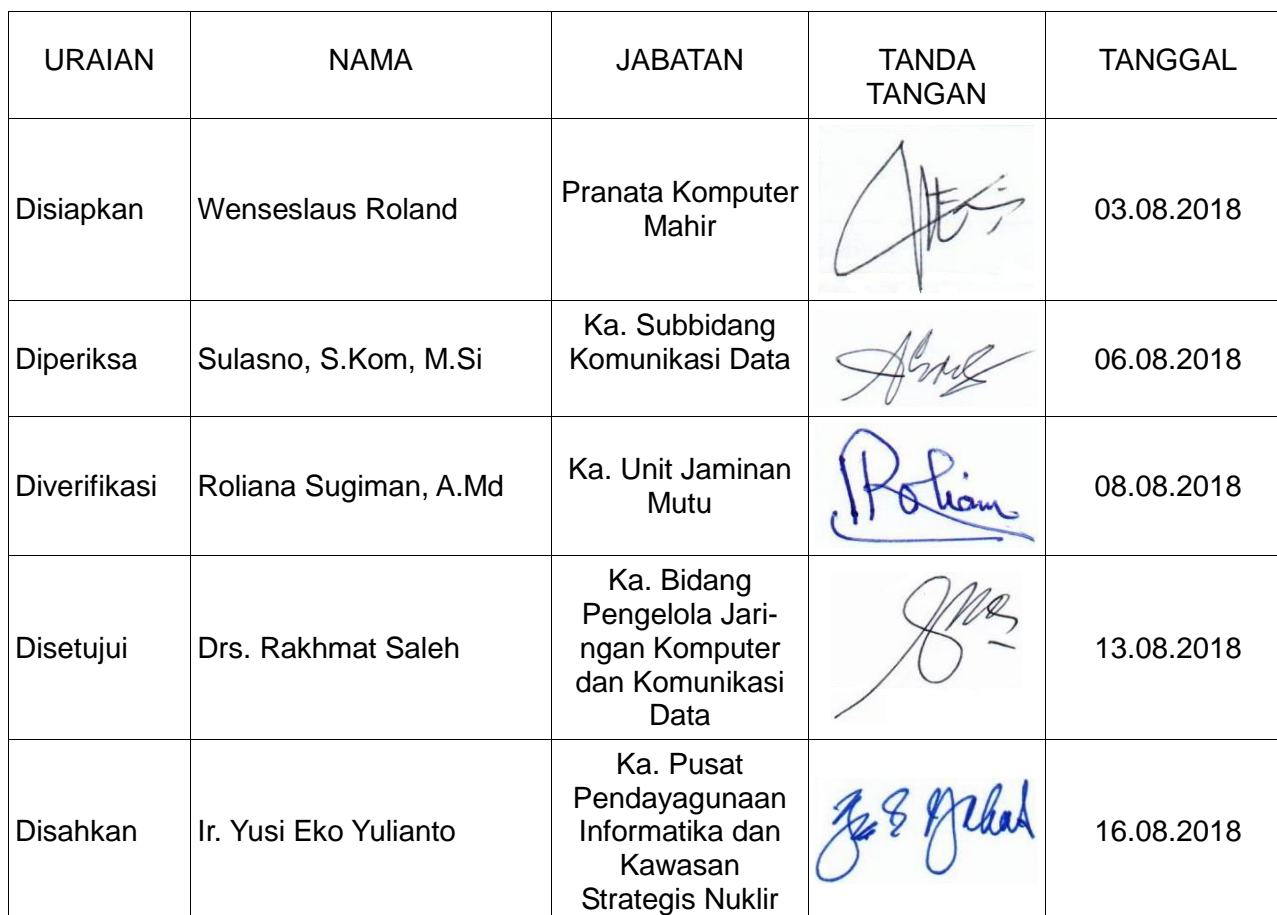 URAIAN
NAMA
JABATAN
TANDA
TANGAN
TANGGAL
Disiapkan
Wenseslaus Roland
Pranata Komputer
Mahir
03.08.2018
Diperiksa
Sulasno, S.Kom, M.Si
Ka. Subbidang
Komunikasi Data
06.08.2018
Diverifikasi
Roliana Sugiman, A.Md
Ka. Unit Jaminan
Mutu
08.08.2018
Disetujui
Drs. Rakhmat Saleh
Ka. Bidang
Pengelola Jari-
ngan Komputer
dan Komunikasi
Data
13.08.2018
Disahkan
Ir. Yusi Eko Yulianto
Ka. Pusat
Pendayagunaan
Informatika dan
Kawasan
Strategis Nuklir
16.08.2018